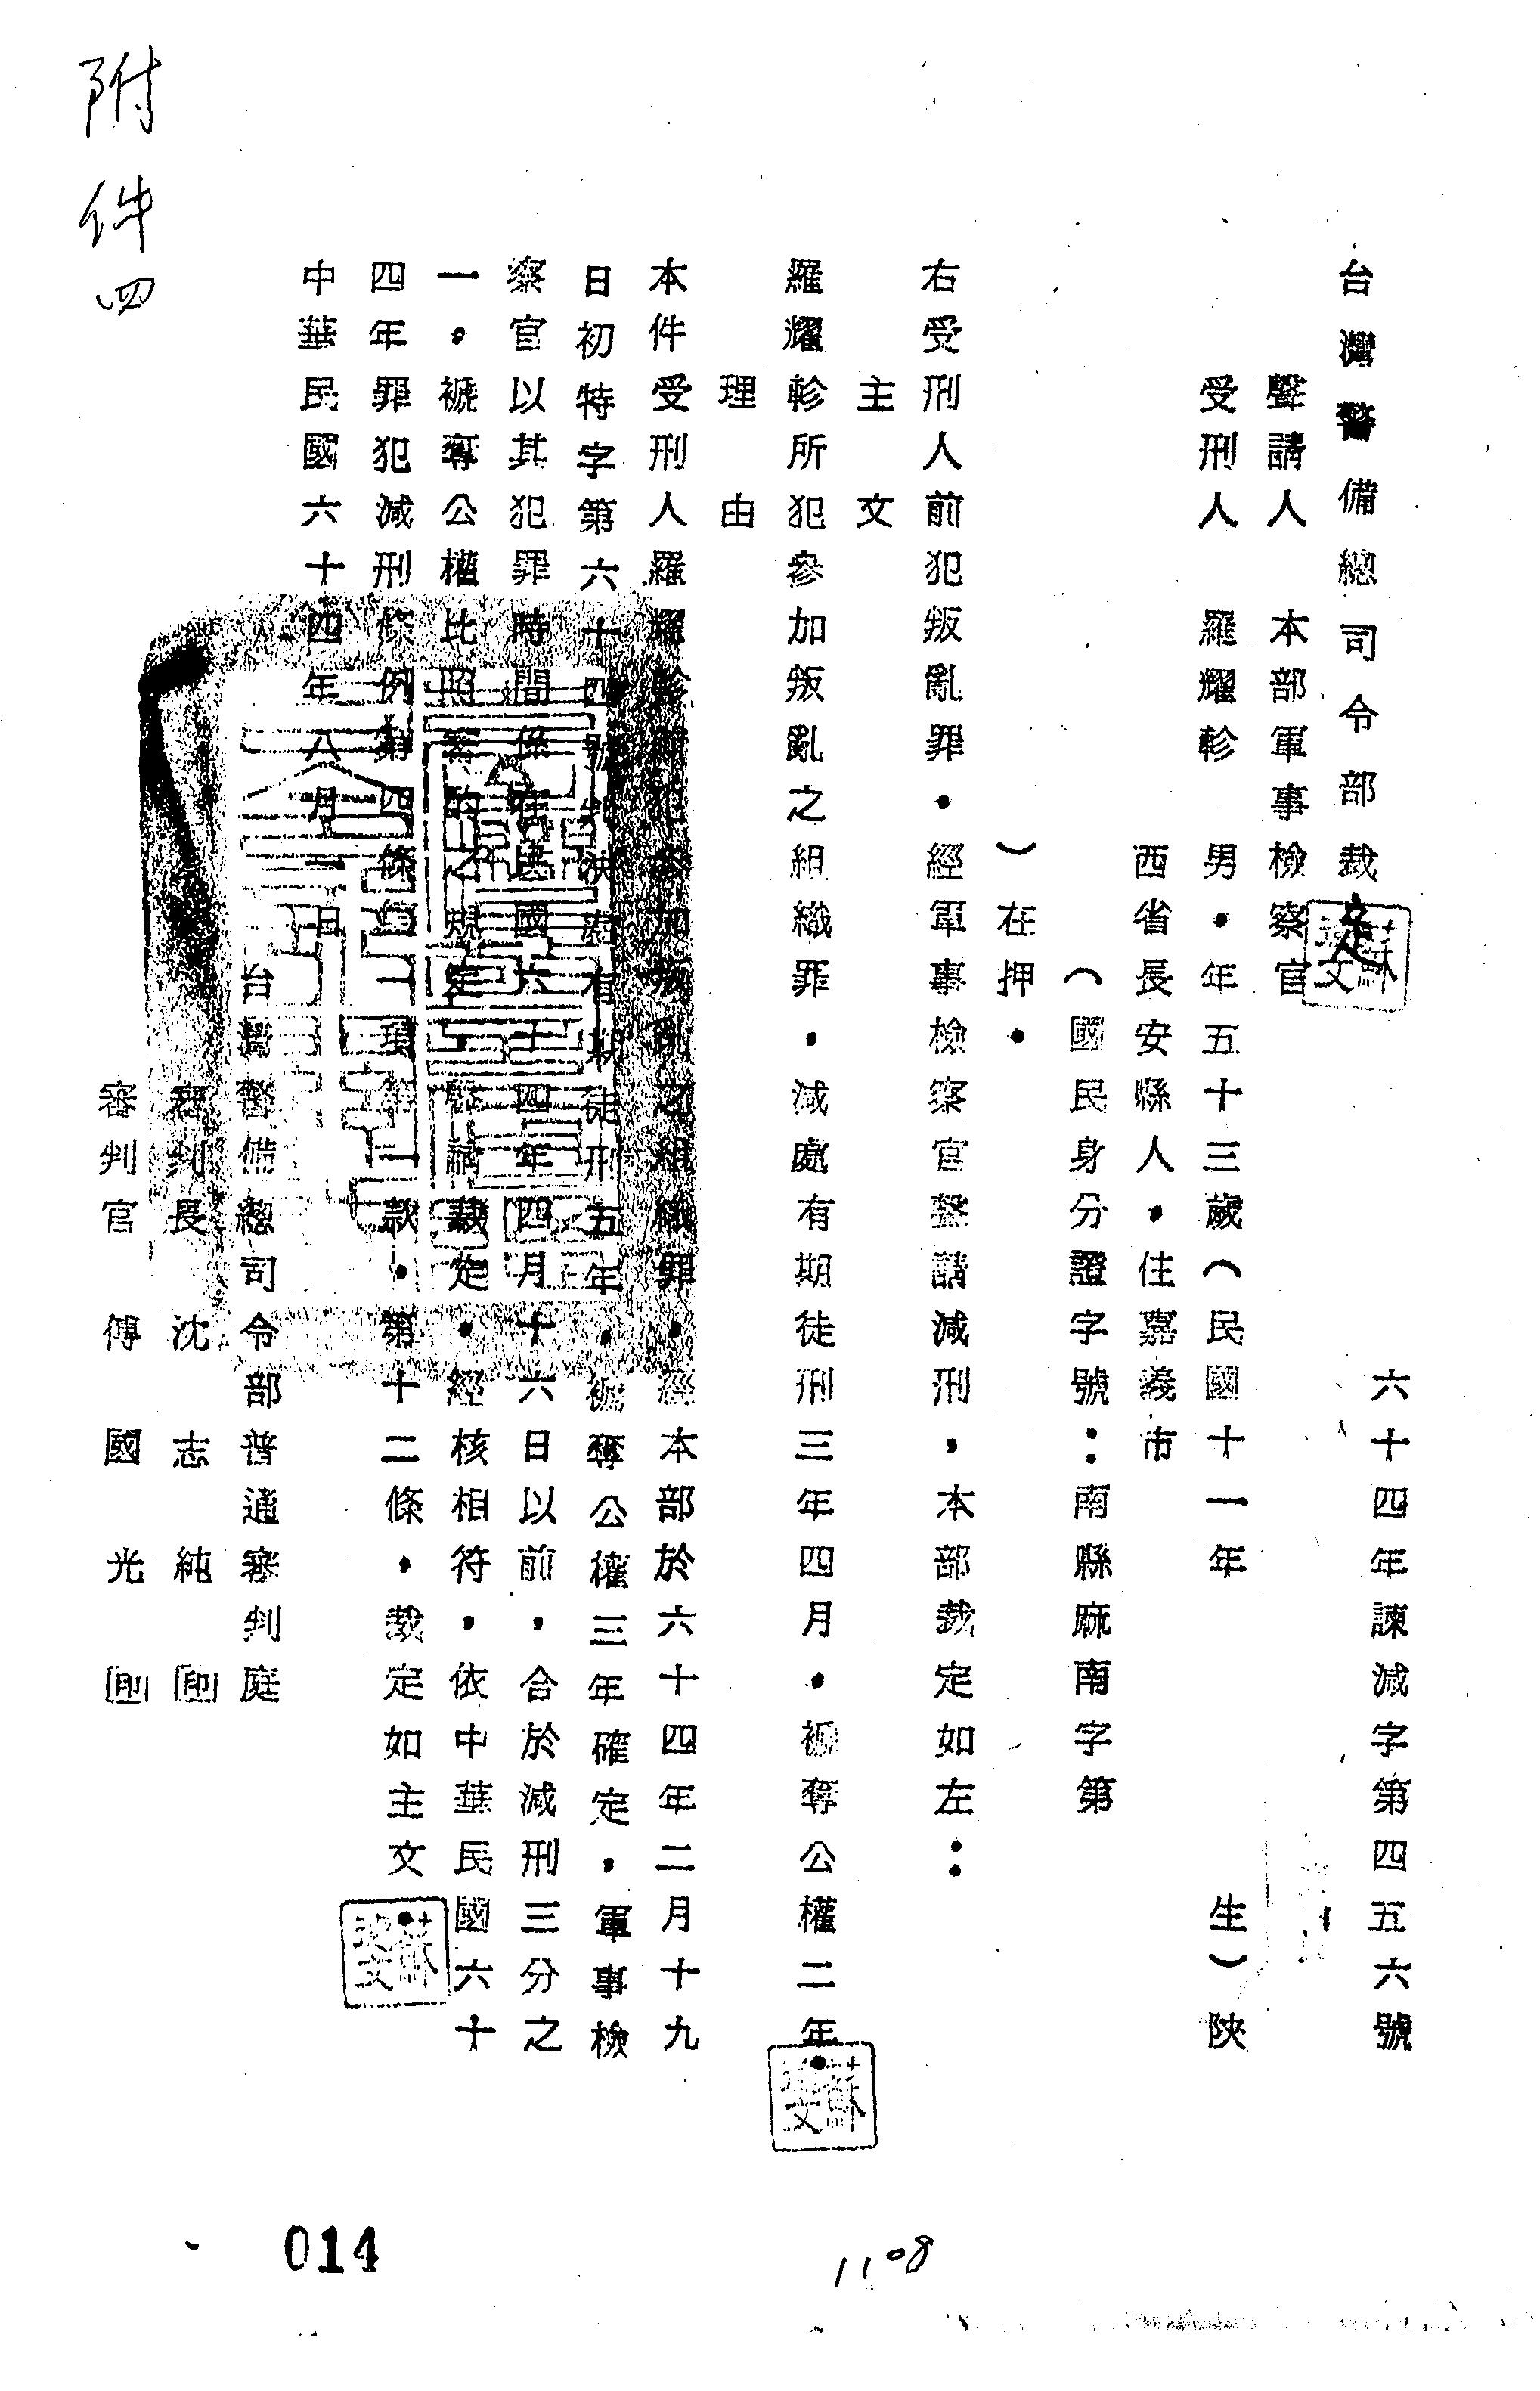 附件四
台灣警備總司令部裁定
六十四年諫減字第四五六號
聲請人　本部軍事檢察官
受刑人　羅耀軫　男・年五十三歲（民國十一年　生）陝
西省長安縣人・住嘉義市
（國民身分證字號：南縣麻南字第
）在押・
右受刑人前犯叛亂罪・經軍事檢察官聲請減刑，本部裁定如左：
主文
羅耀軫所犯參加叛亂之組織罪・減處有期徒刑三年四月・褫奪公權二年・
理由
本件受刑人羅耀軫前犯參加叛亂之組織罪・經本部於六十四年二月十九
日初特字第六十四號判決處有期徒刑五年・褫奪公權三年確定・軍事檢
察官以其犯罪時間係在民國六十四年四月十六日以前，合於減刑三分之
一・褫奪公權比照主刑之規定・聲請裁定・經核相符，依中華民國六十
四年罪犯減刑條例第四條第一項第二款・第十二條・裁定如主文・
中華民國六十四年八月一日
台灣警備總司令部普通審判庭
審判長　沈志純 印
審判官　傅國光 印
014
1108